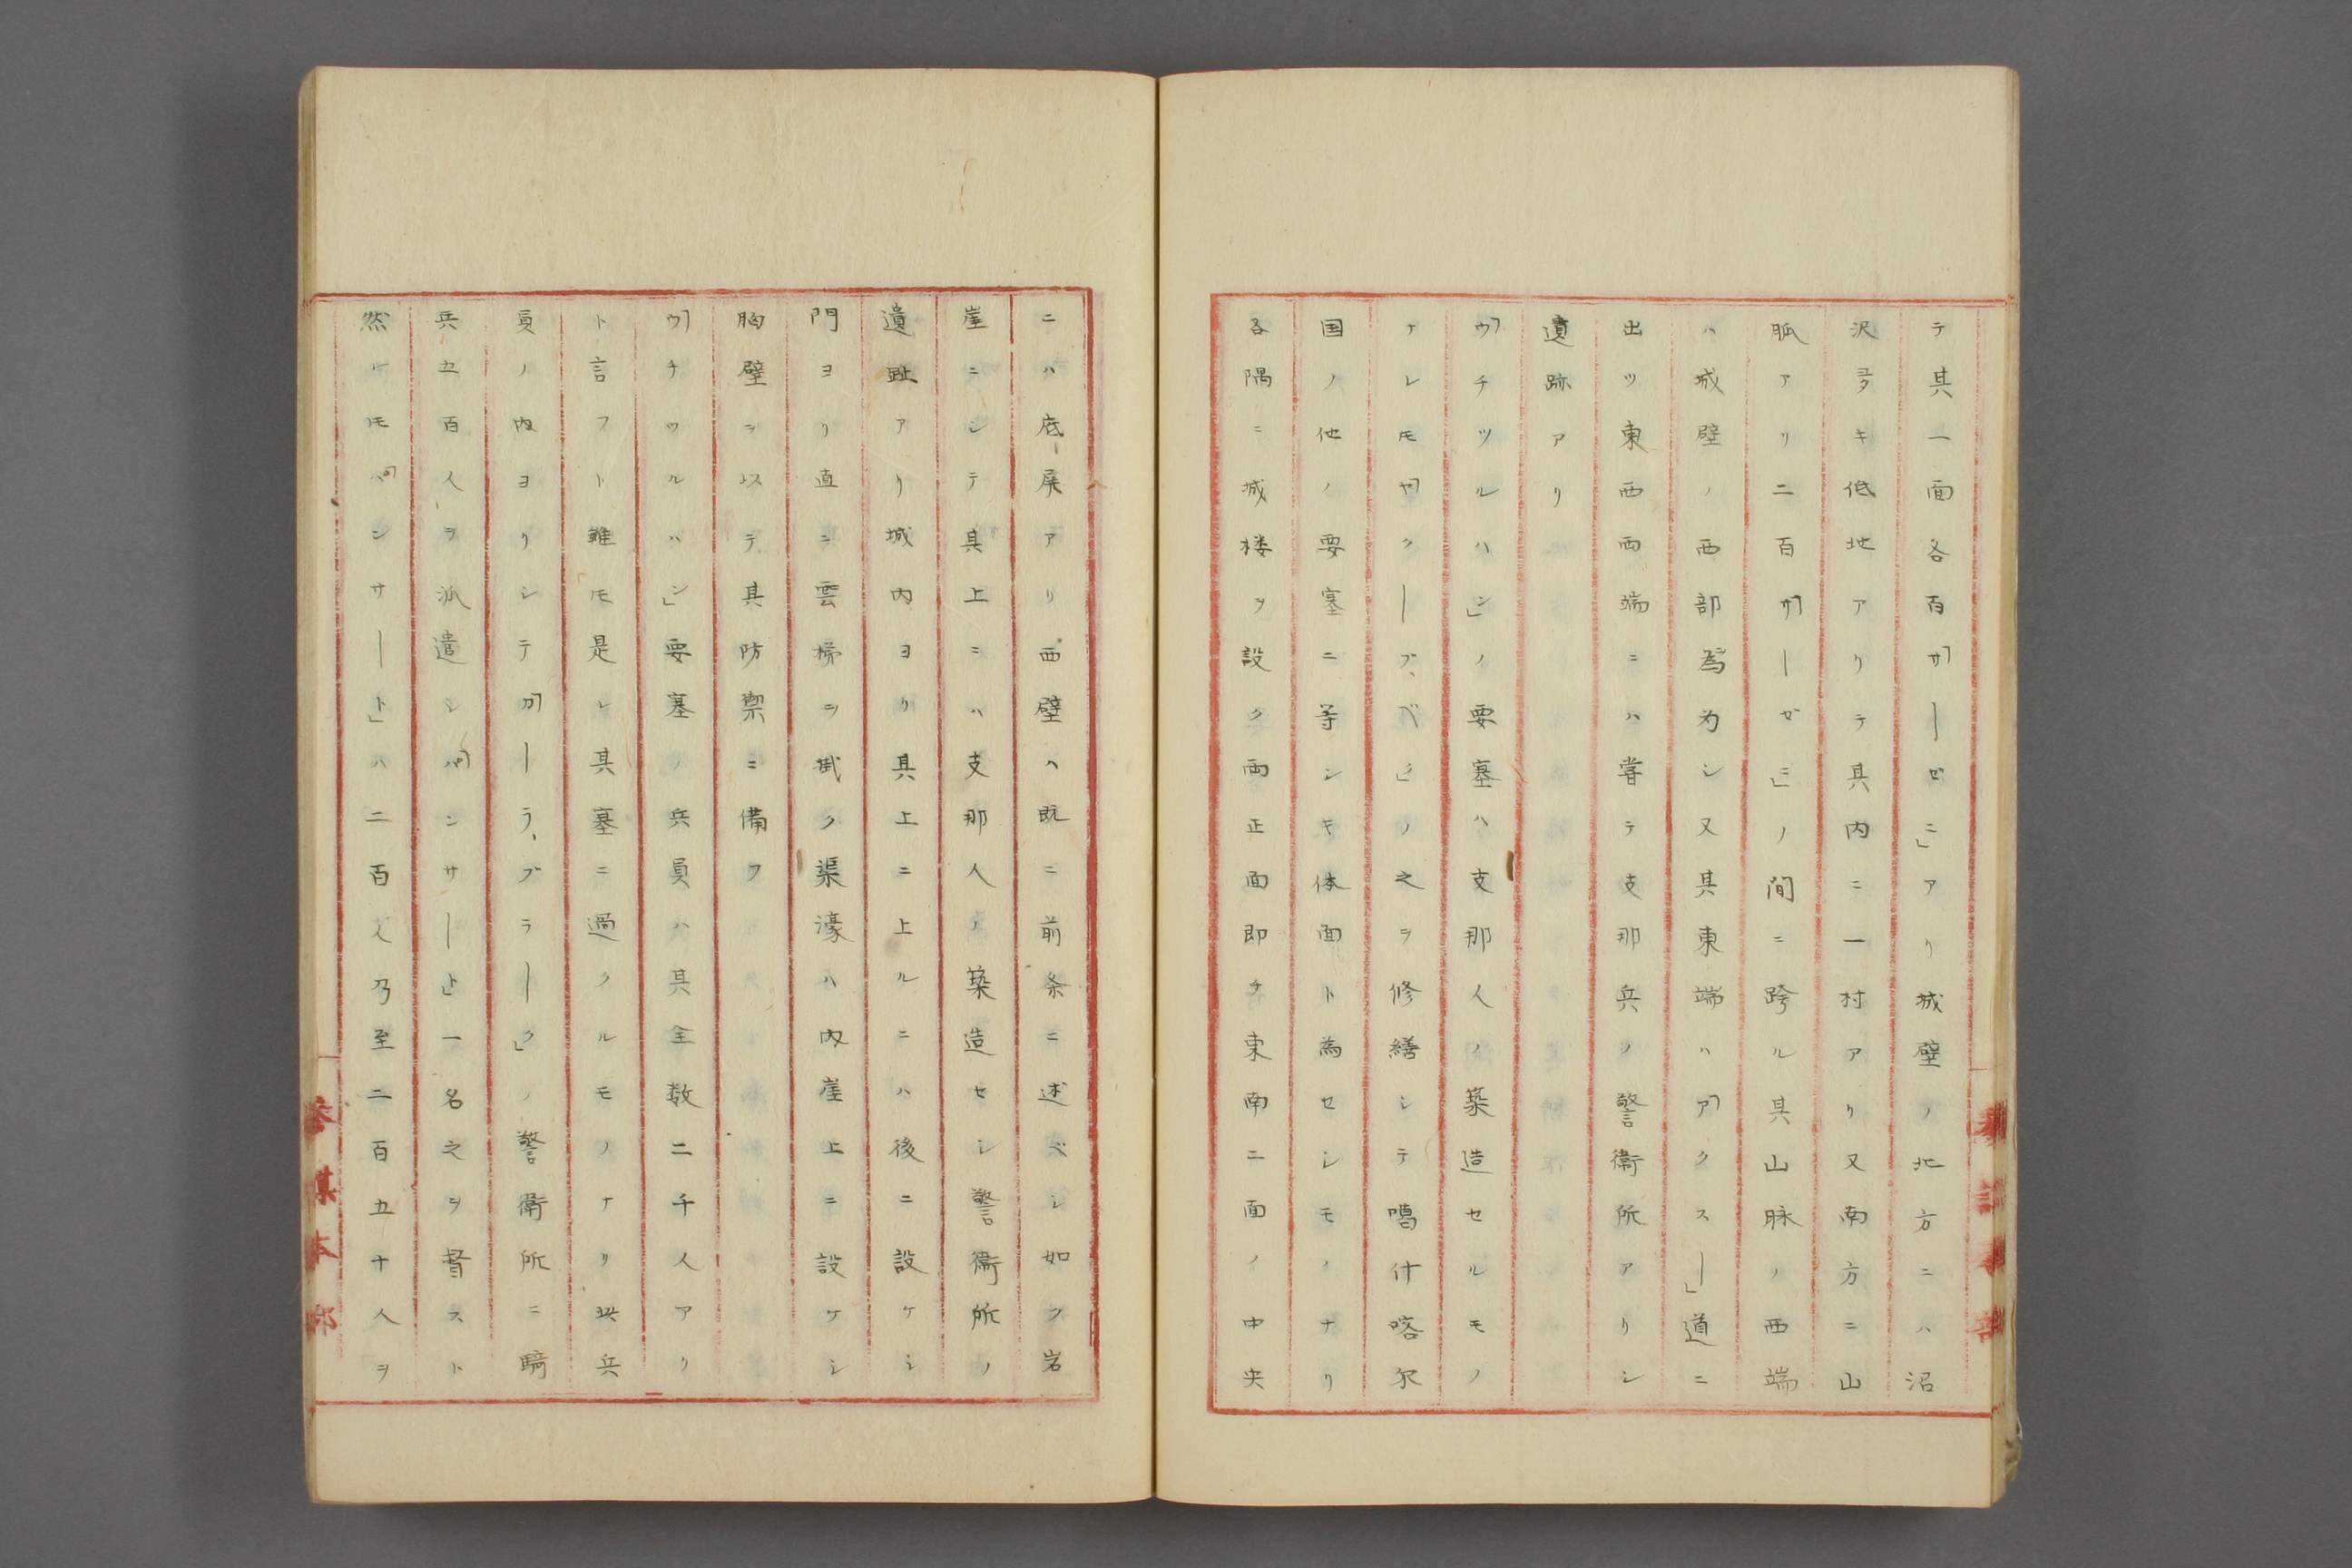 テ其一面各百「サーゼニ」アリ城壁ノ北方ニハ沼
沢多キ低地アリテ其内ニ一村アリ又南方ニ山
脈アリ二百「サーゼニ」ノ間ニ跨ル其山脉ノ西端
ハ城壁ノ西部為シ又其東端ハ「アクスー」道ニ
出ツ東西両端ニハ嘗テ支那兵ノ警衛所アリシ
遺跡アリ
「ウチツルハン」ノ要塞ハ支那人ノ築造セルモノ
ナレモ「ヤクーブ、ベク」ノ之ヲ修繕シテ噶什喀尔
国ノ他ノ要塞ニ等シキ体面ト為セシモノナリ
各隅ニ城楼ヲ設ク両正面即チ東南ニ面ノ中央
ニハ底ー戻アリ西壁ハ既ニ前条ニ述ベシ如ク岩
崖ニシテ其上ニハ支那人ノ築造セシ警衛所ノ
遺趾アリ城内ヨリ其上ニ上ルニハ後ニ設ケシ
門ヨリ直ニ雲梯ヲ掛ク渠濠ハ内崖上ニ設ケシ
胸壁ヲ以テ其防禦ニ備フ
「ウチツルハン」要塞ノ兵員ハ其全数二千人アリ
ト言フト雖モ是レ其塞ニ過クルモノナリ此兵
員ノ内ヨリシテ「カーラ、ブラーク」ノ警衛所ニ騎
兵五百人ヲ派遣シ「パンサート」一名之ヲ督スト
然レモ「パンサート」ハ二百人乃至二百五十人ヲ
参謀本部